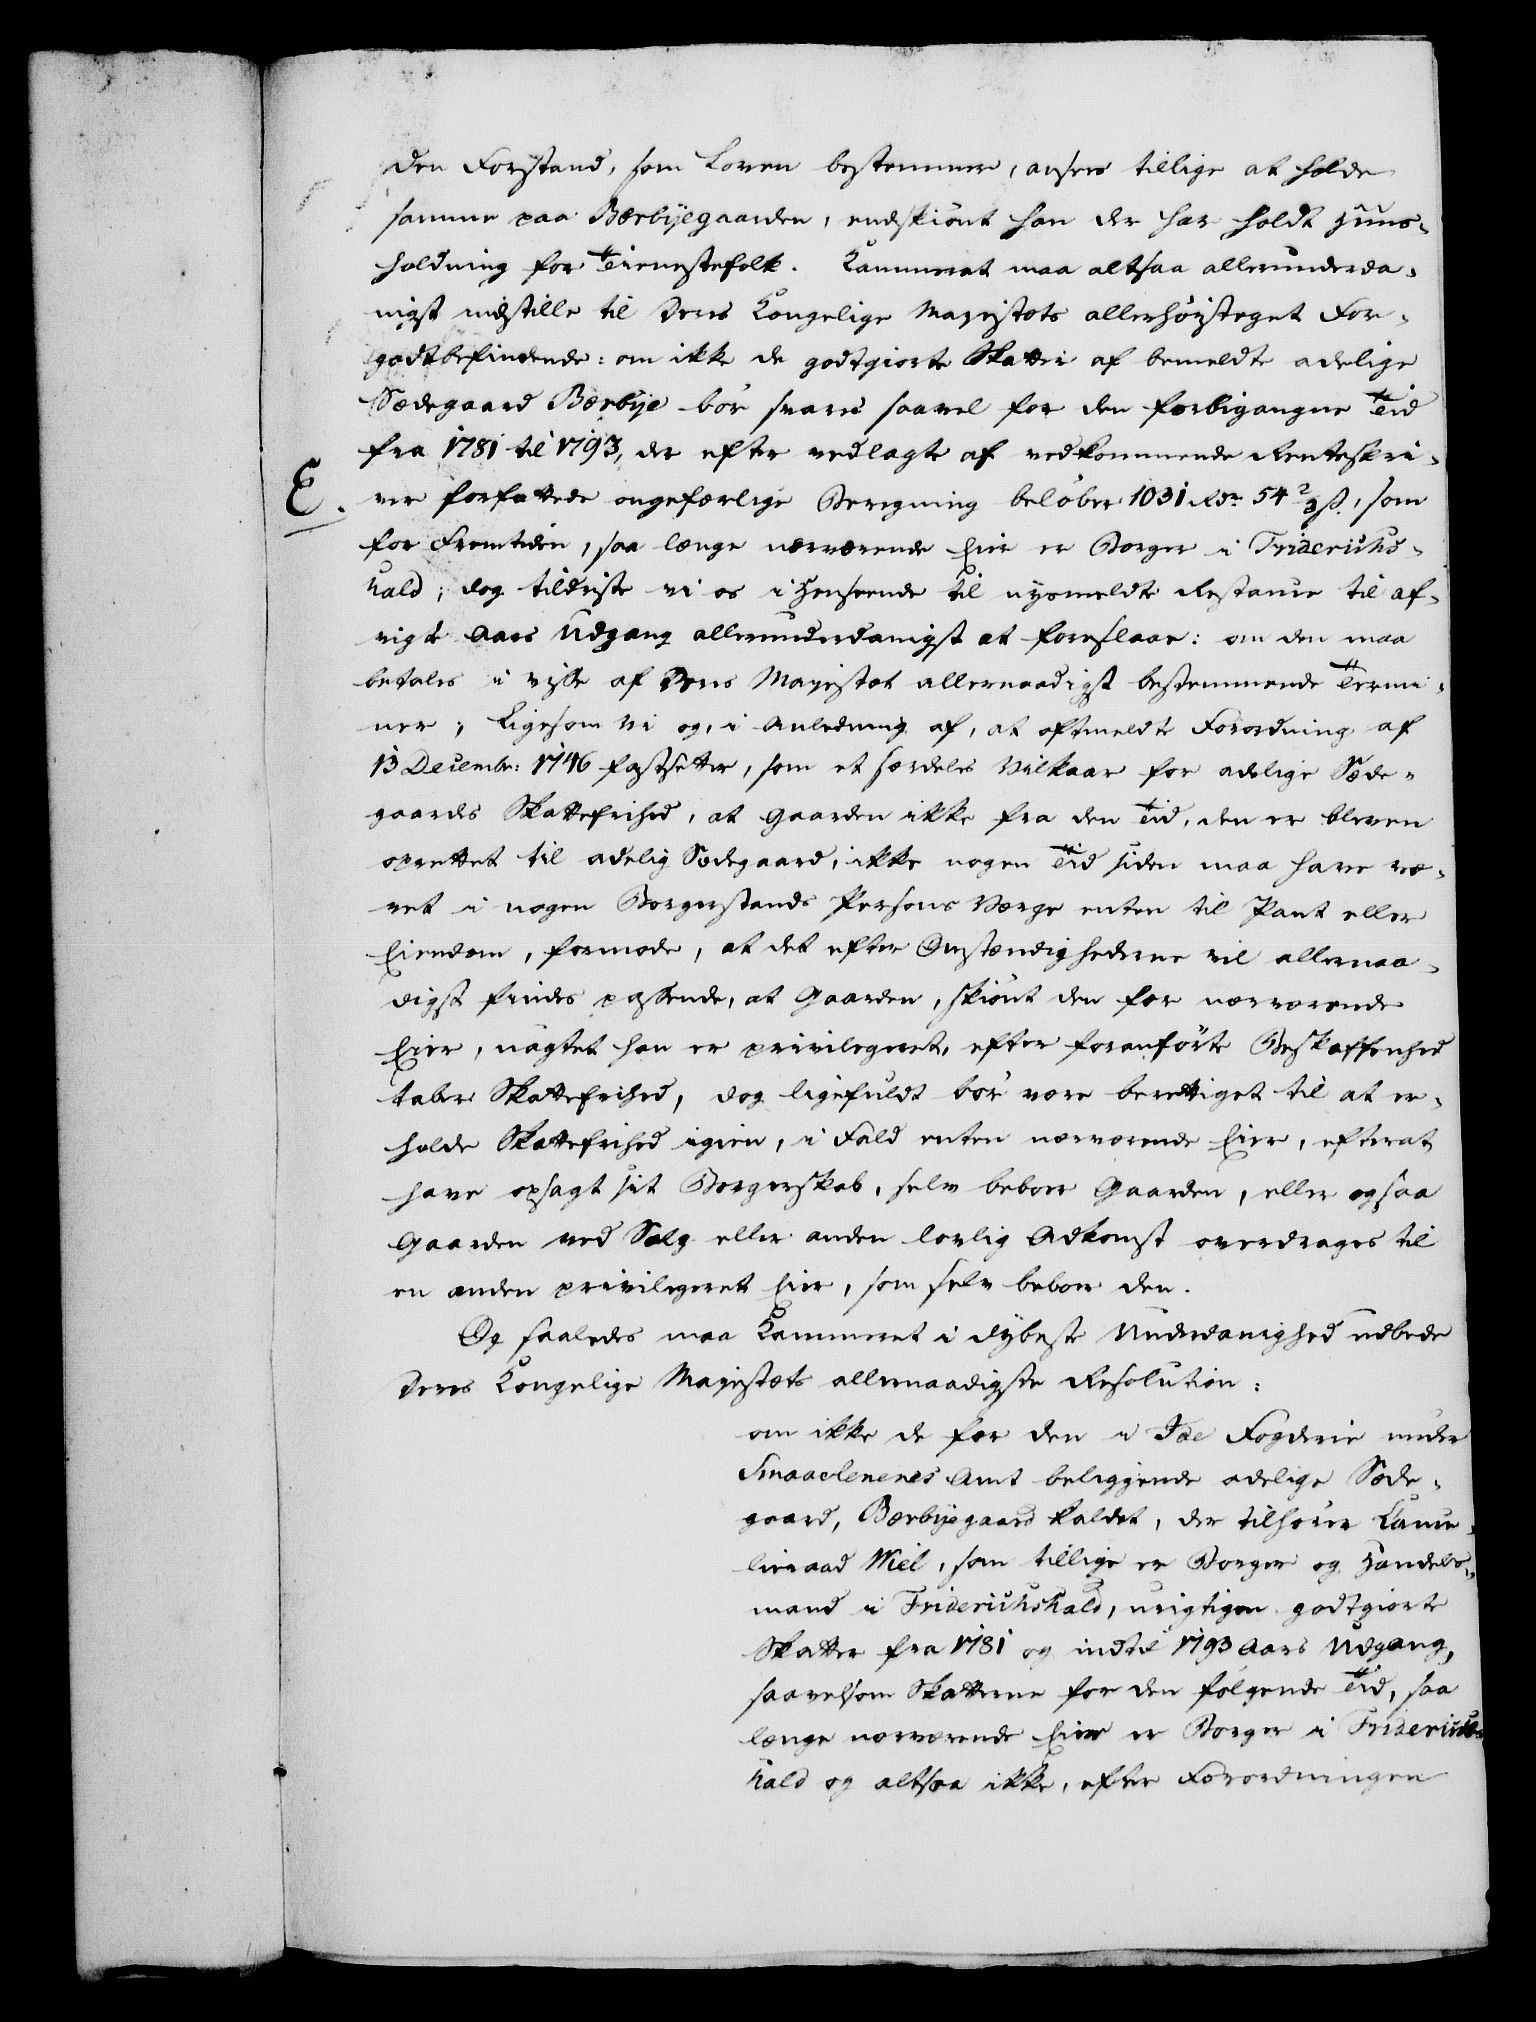 den Forstand, som Loven bestemmer, ansees tillige at holde
samme paa Bærbyegaarden, endskiønt han der har holdt Huus-
holdning for Tienestefolk. Kammeret maa altsaa allerunderda-
nigst indstille til Deres Kongelige Majestæts allerhøisteget For-
godtbefindende: om ikke de godtgiorte Skatter af bemeldte adelige
Sædegaard Bærbye bør svares saavel for den forbigangne Tiid
fra 1781 til 1793, der efter vedlagte af vedkommende Renteskri-
E. ver forfattede ongefærlige Beregning beløber 1031 Rdr 54 2/3 ß., som
for Fremtiden, saa længe nærværende Eier er Borger i Friderichs-
hald; dog tildriste vi os i Henseende til nysmeldte Restance til af-
vigte Aars Udgang allerunderdanigst at foreslaae: om den maa
betales i visse af Deres Majestæt allernaadigst bestemmende Termi-
ner; Ligesom vi og, i Anledning af, at oftmeldte Forordning af
13 Decembr: 1746 fastsetter, som et særdeles Vilkaar for adelige Sæde-
gaardes Skattefrihed, at Gaarden ikke fra den Tiid, den er bleven
oprettet til adelig Sædegaard, ikke nogen Tiid siden maa have væ-
ret i nogen Borgerstands Persons Værge enten til Pant eller
Eiendom, formode, at det efter Omstændighederne vil allernaa-
digst findes passende, at Gaarden, skiønt den for nærværende
Eier, uagtet han er privilegeret, efter foranførte Beskaffenhed
taber Skattefrihed, dog ligefuldt bør være berettiget til at er-
holde Skattefrihed igien, i Fald enten nærværende Eier, efterat
have opsagt sit Borgerskab, selv beboer Gaarden, eller ogsaa
Gaarden ved Salg eller anden lovlig Adkomst overdrages til
en anden privilegeret Eier, som selv beboer den.
Og saaledes maa Kammeret i dybeste Underdanighed udbede
Deres Kongelige Majestæts allernaadigste Resolution:
om ikke de for den i Ide Fogderie under
Smaaelenenes Amt beliggende adelige Sæde-
gaard, Bærbyegaard kaldet, der tilhører Cance-
lieraad Wiel, som tillige er Borger og Handels-
mand i Friderichshald, urigtigen godtgiorte
Skatter fra 1781 og indtil 1793 Aars Udgang,
saavelsom Skatterne for den følgende Tiid, saa
længe nærværende Eier er Borger i Friderichs-
hald og altsaa ikke, efter Forordningen